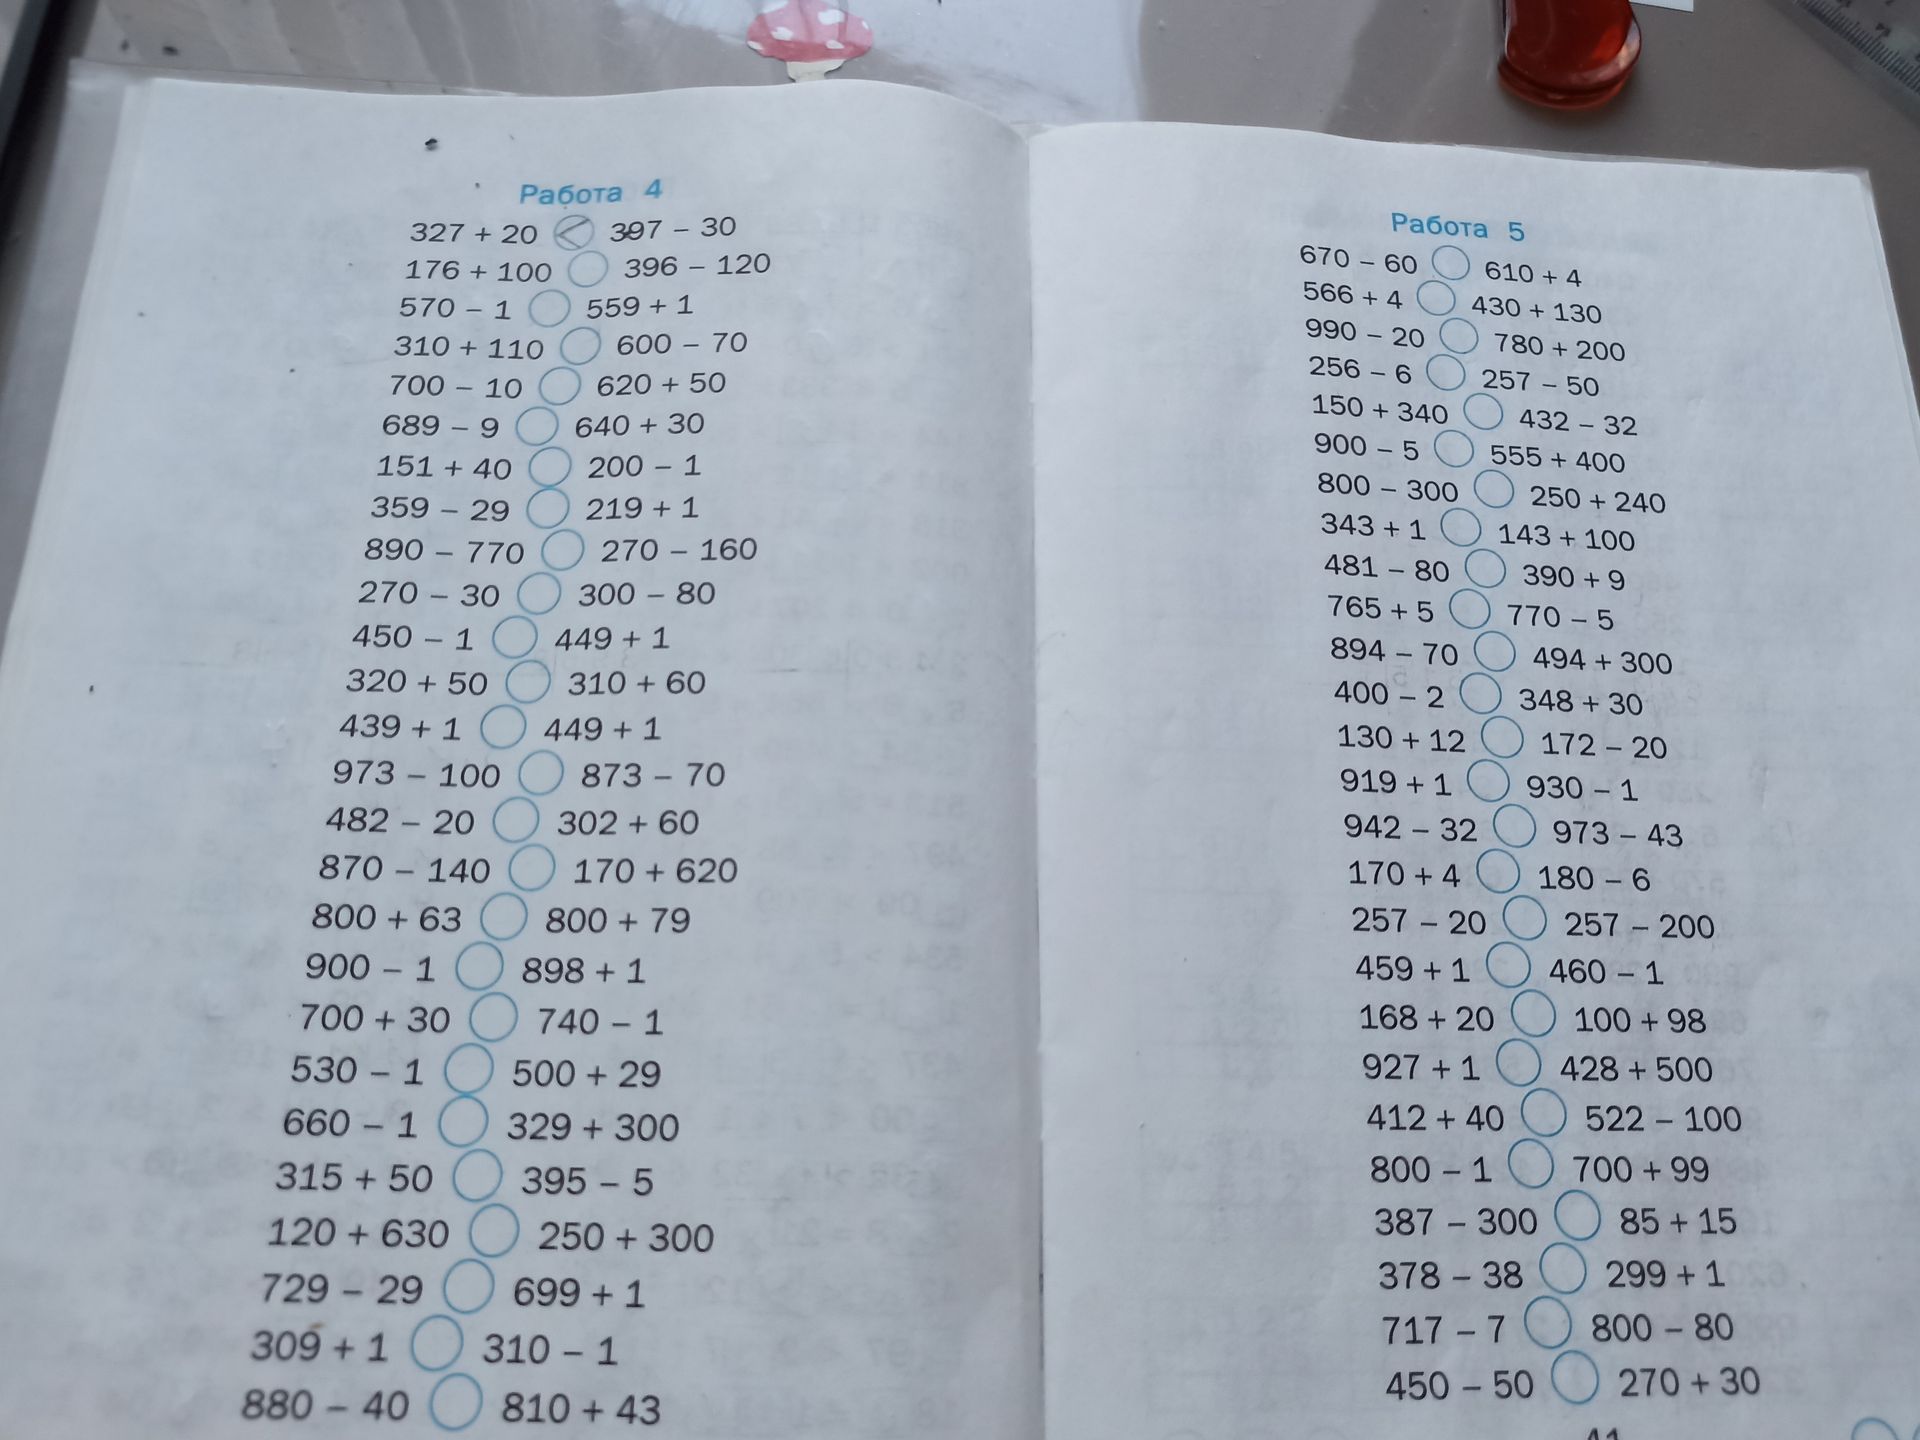 Работа 4
327 + 20 < 397 – 30
176 + 100 396 – 120
570 – 1 559 + 1
310 + 110 600 – 70
700 – 10 620 + 50
689 – 9 640 + 30
151 + 40 200 – 1
359 – 29 219 + 1
890 – 770 270 – 160
270 – 30 300 – 80
450 – 1 449 + 1
320 + 50 310 + 60
439 + 1 449 + 1
973 – 100 873 – 70
482 – 20 302 + 60
870 – 140 170 + 620
800 + 63 800 + 79
900 – 1 898 + 1
700 + 30 740 – 1
530 – 1 500 + 29
660 – 1 329 + 300
315 + 50 395 – 5
120 + 630 250 + 300
729 – 29 699 + 1
309 + 1 310 – 1
880 – 40 810 + 43
Работа 5
670 – 60 610 + 4
566 + 4 430 + 130
990 – 20 780 + 200
256 – 6 257 – 50
150 + 340 432 – 32
900 – 5 555 + 400
800 – 300 250 + 240
343 + 1 143 + 100
481 – 80 390 + 9
765 + 5 770 – 5
894 – 70 494 + 300
400 – 2 348 + 30
130 + 12 172 – 20
919 + 1 930 – 1
942 – 32 973 – 43
170 + 4 180 – 6
257 – 20 257 – 200
459 + 1 460 – 1
168 + 20 100 + 98
927 + 1 428 + 500
412 + 40 522 – 100
800 – 1 700 + 99
387 – 300 85 + 15
378 – 38 299 + 1
717 – 7 800 – 80
450 – 50 270 + 30